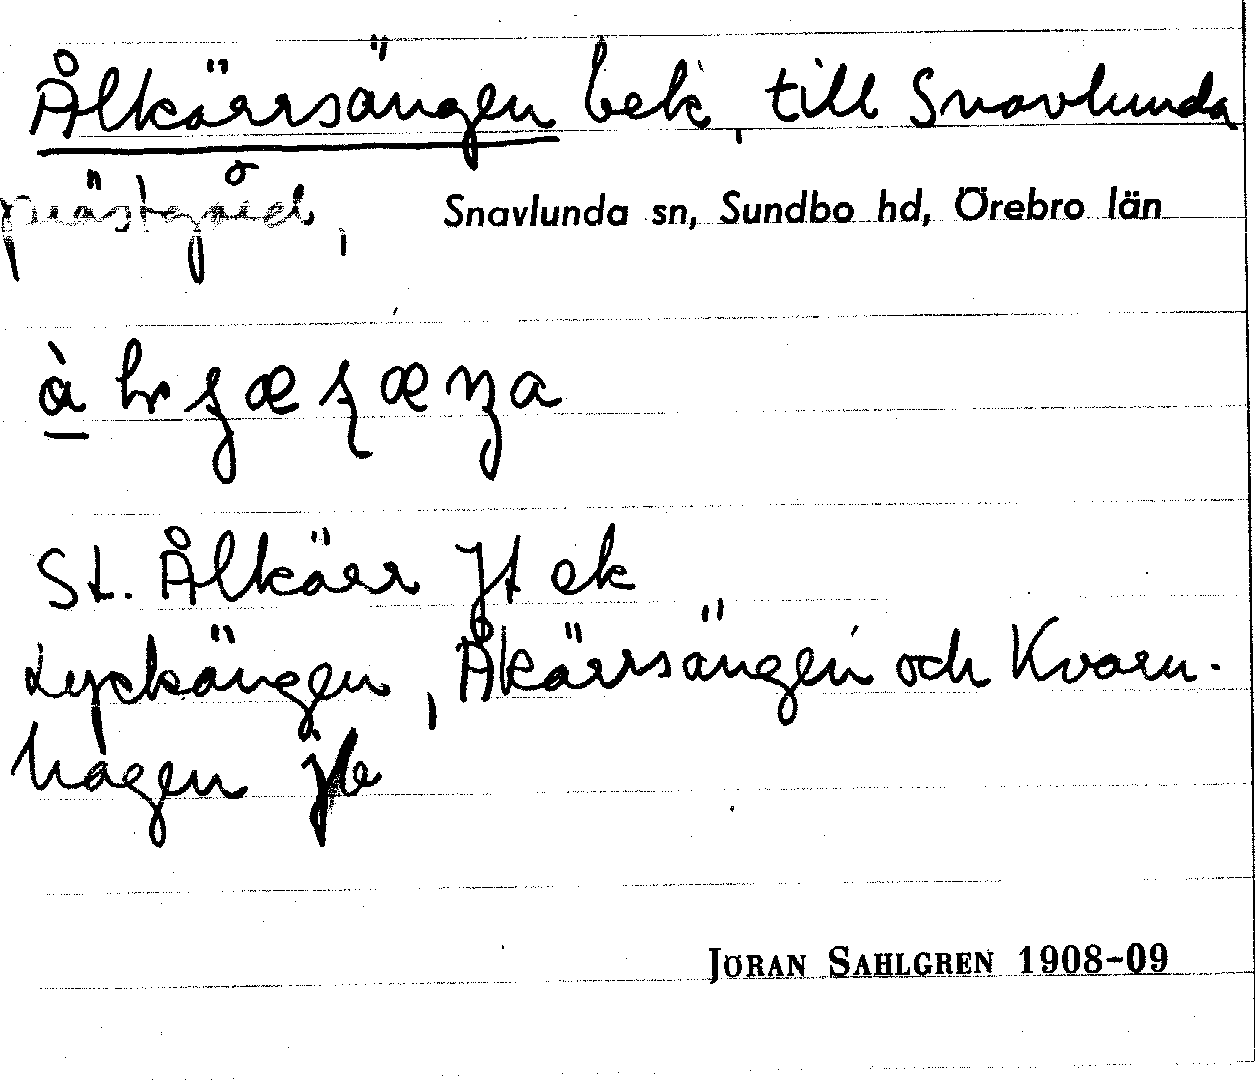 Ålkärrsängen bek. till Snavlunda
prästgård, Snavlunda sn, Sundbo hd, Örebro län
St. Ålkärr Jt ek
Lyckängen, Åkärrsängen och Kvarn-
hagen jb
JÖRAN SAHLGREN 1908-09